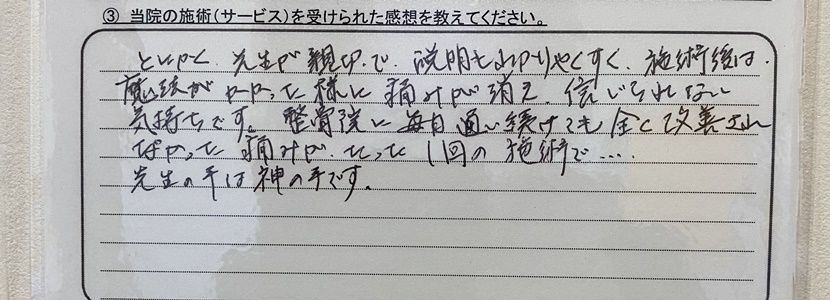 ③ 当院の施術(サービス)を受けられた感想を教えてください。
とにかく、先生が親切で、説明もわかりやすく、施術後は、
魔法がかかった様に痛みが消え、信じられない
気持ちです。整骨院に毎日通い続けても全く改善され
なかった痛みが、たった1回の施術で….
先生の手は神の手です。